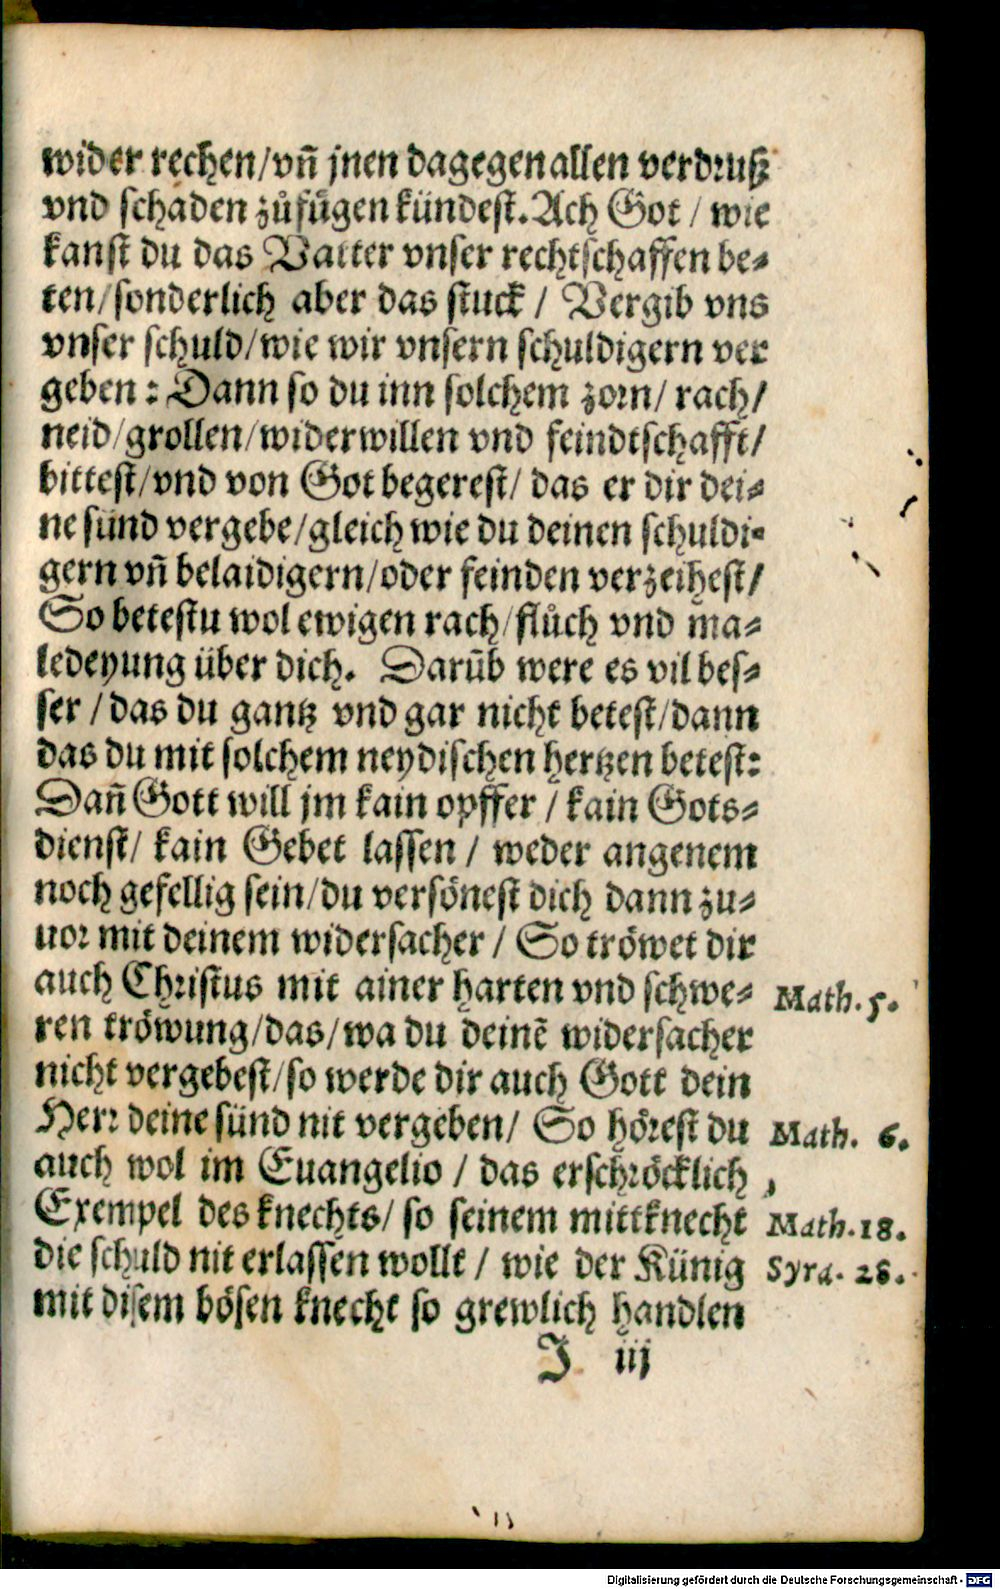 wider rechen/vn̄ jnen dagegen allen verdruß
vnd schaden zůfügen kündest. Ach Got / wie
kanst du das Vatter vnser rechtschaffen be-
ten/sonderlich aber das stuck / Vergib vns
vnser schuld/wie wir vnsern schuldigern ver
geben: Dann so du inn solchem zorn/ rach/
neid/grollen/widerwillen vnd feindtschafft/
bittest/vnd von Got begerest/ das er dir dei-
ne sünd vergebe/gleich wie du deinen schuldi-
gern vn̄ belaidigern/oder feinden verzeihest/
So betestu wol ewigen rach/flůch vnd ma-
ledeyung über dich. Darūb were es vil bes-
ser / das du gantz vnd gar nicht betest/dann
das du mit solchem neydischen hertzen betest:
Dan̄ Gott will jm kain opffer / kain Gots-
dienst/ kain Gebet lassen / weder angenem
noch gefellig sein/du versönest dich dann zu-
uor mit deinem widersacher / So tröwet dir
auch Christus mit ainer harten vnd schwe- Math. 5.
ren tröwung/das/wa du deinē widersacher
nicht vergebest/so werde dir auch Gott dein
Herr deine sünd nit vergeben/ So hörest du Math. 6.
auch wol im Euangelio / das erschröcklich ,
Exempel des knechts/ so seinem mittknecht Math. 18.
die schuld nit erlassen wollt / wie der Künig Syra. 28.
mit disem bösen knecht so grewlich handlen
J iij
Digitalisierung gefördert durch die Deutsche Forschungsgemeinschaft - DFG